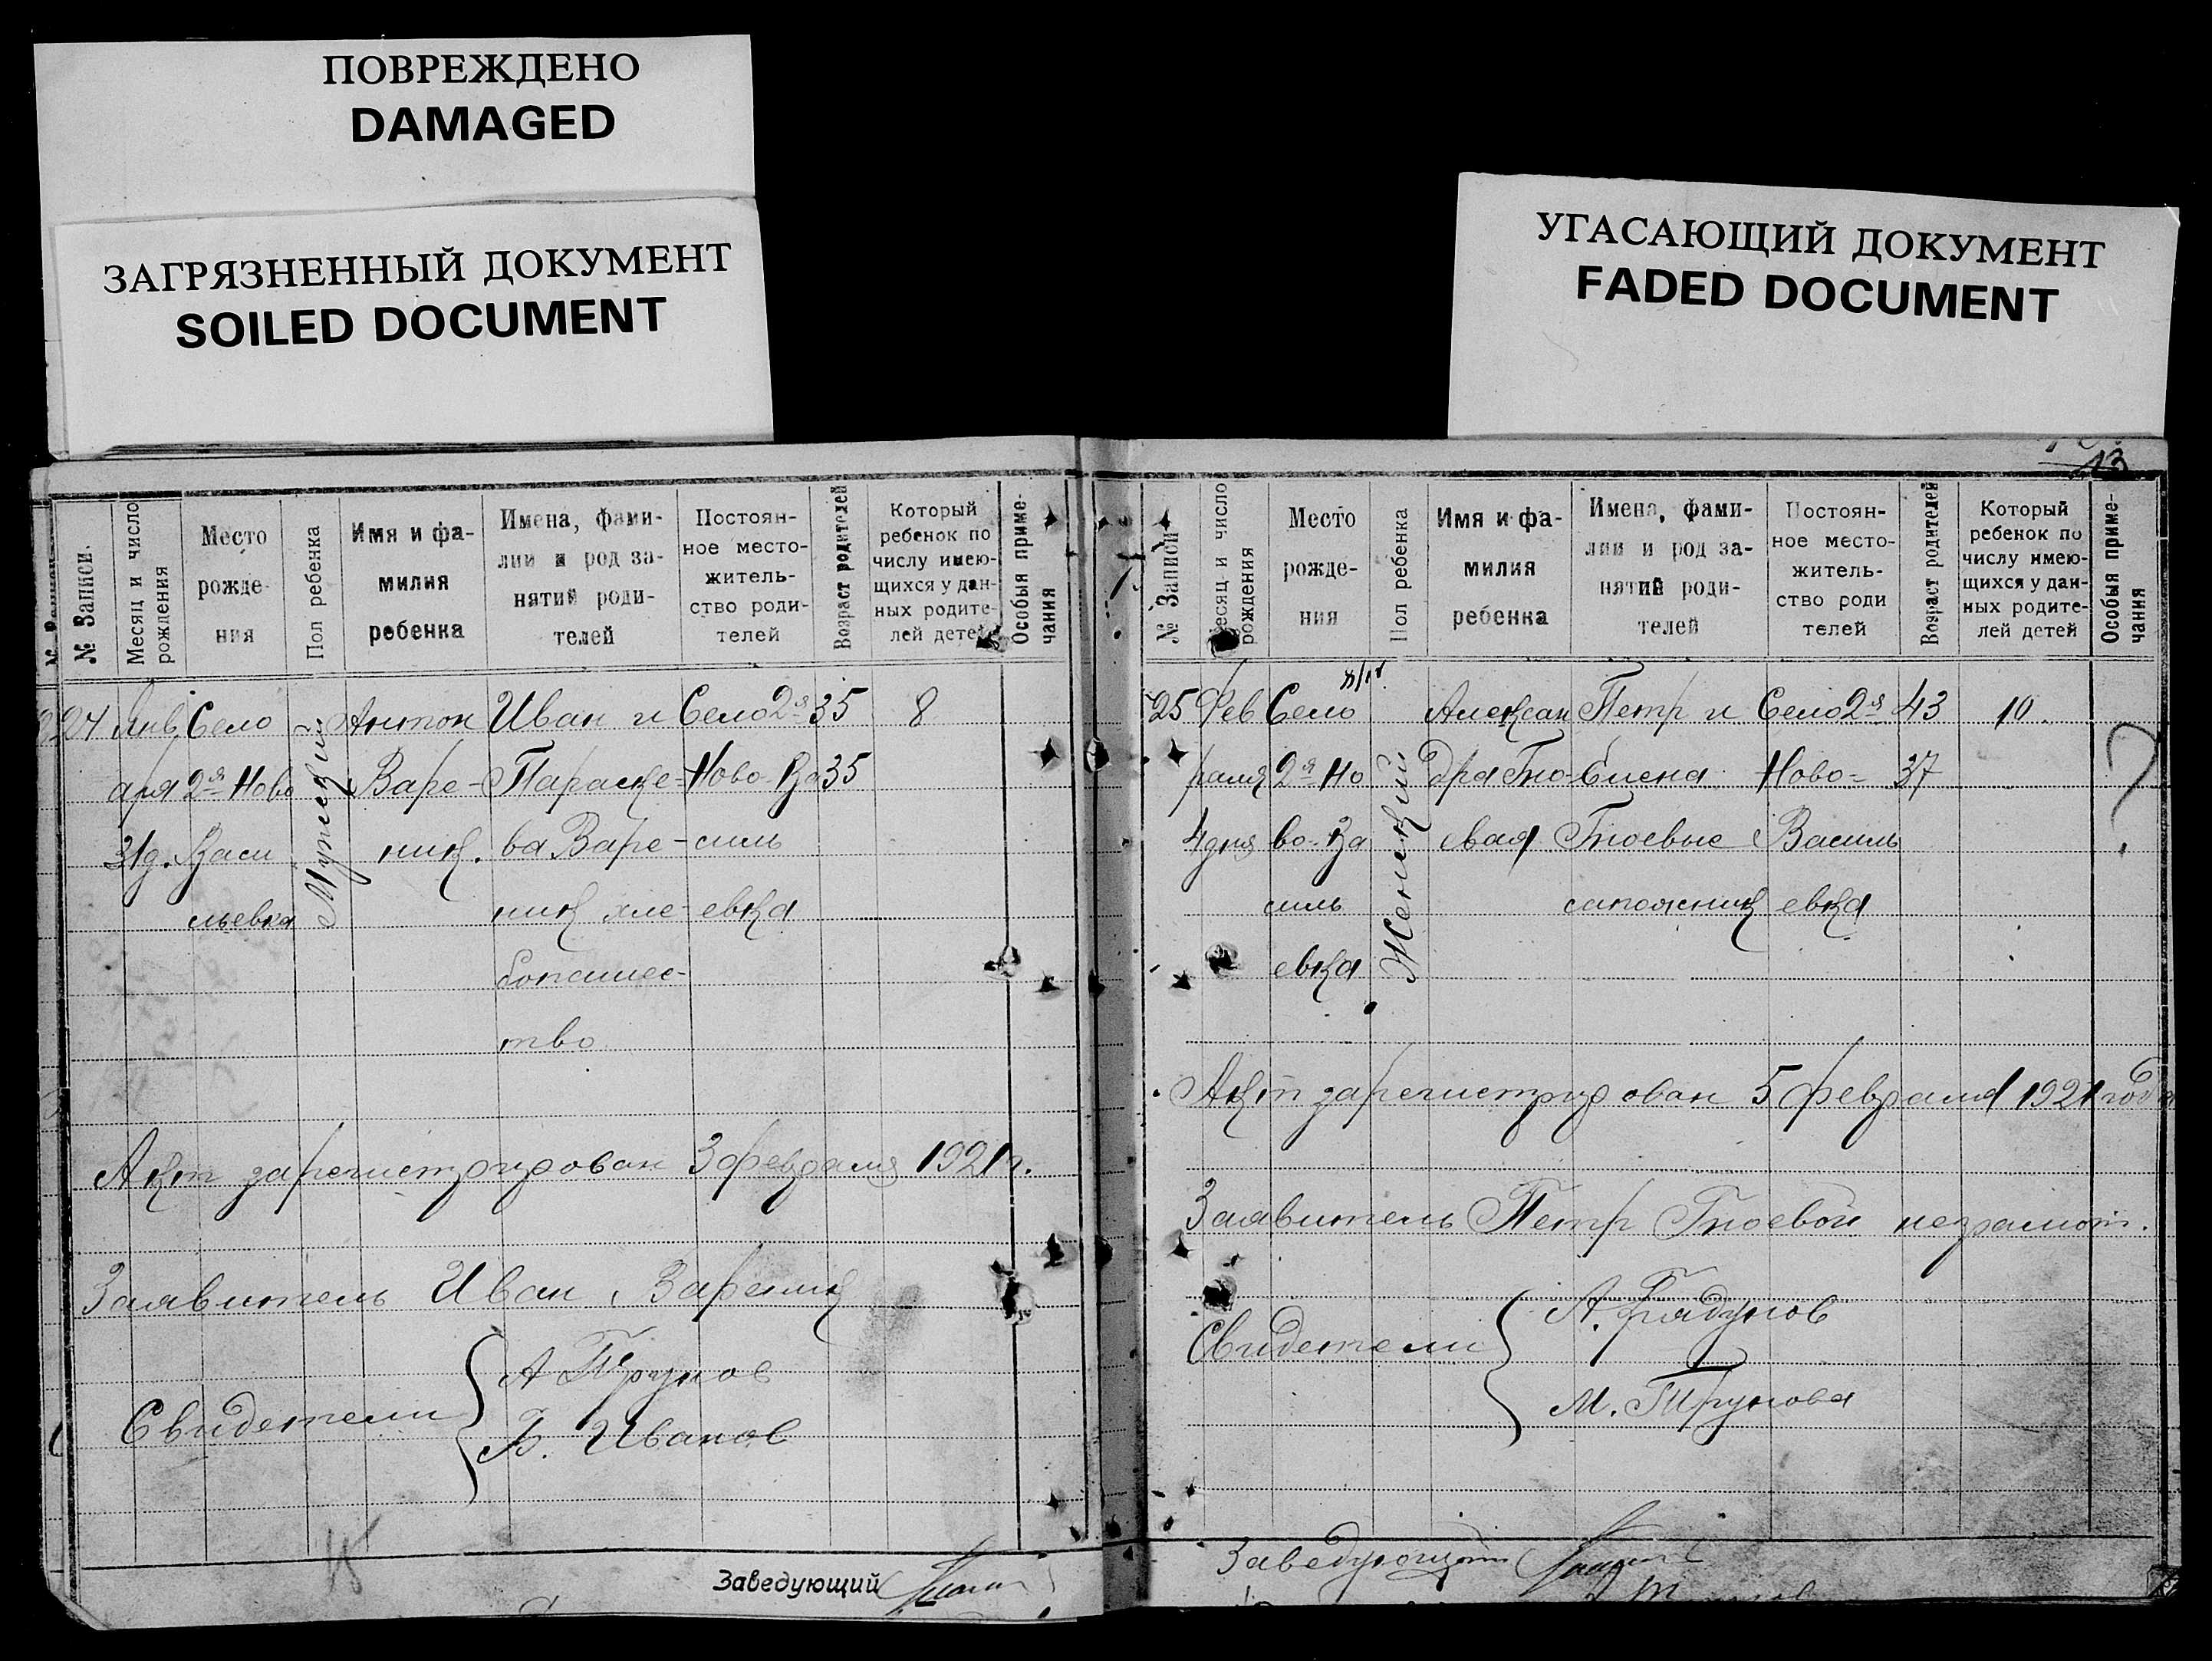 ПОВРЕЖДЕНО
DAMAGED
ЗАГРЯЗНЕННЫЙ ДОКУМЕНТ
SOILED DOCUMENT
УГАСАЮЩИЙ ДОКУМЕНТ
FADED DOCUMENT
№ Записи.
Месяц и число рождения
Место рожде- ния
Пол ребенка
Имя и фа- милия ребенка
Имена, фами- лии и род за- нятий роди- телей
Постоян- ное место- житель- ство роди- телей
Возраст родителей
Который ребенок по числу имею- щихся у дан- ных родите- лей детей
Особыя приме- чания
24 Янв Село Антон Иван и Село 2я 35 8
аря 2я Ново Варе- Параске- Ново-Ва 35
31 д. Васи ник. ва Варе- силь
льевка ник хле- евка
бопашес-
тво
Мужской
Акт зарегистрирован 3 февраля 1921 г.
Заявитель Иван Вареник
Свидетели
А Трунов
Б. Иванов
Заведующий
13
№ Записи
Месяц и число рождения
Место рожде- ния
Пол ребенка
Имя и фа- милия ребенка
Имена, фами- лии и род за- нятий роди- телей
Постоян- ное место- житель- ство роди телей
Возраст родителей
Который ребенок по числу имею- щихся у дан- ных родите- лей детей
Особыя приме- чания
25 Фев Село Алексан Петр и Село 2я 43 10.
раля 2я Но дра Гно- Елена Ново- 37
4 дня во-Ва евая Гноевые Василь
силь сапожник евка
евка
Женский
?
Акт зарегистрирован 5 февраля 1921 года
Заявитель Петр Гноевой неграмот.
Свидетели
М. Трунова
Заведующий